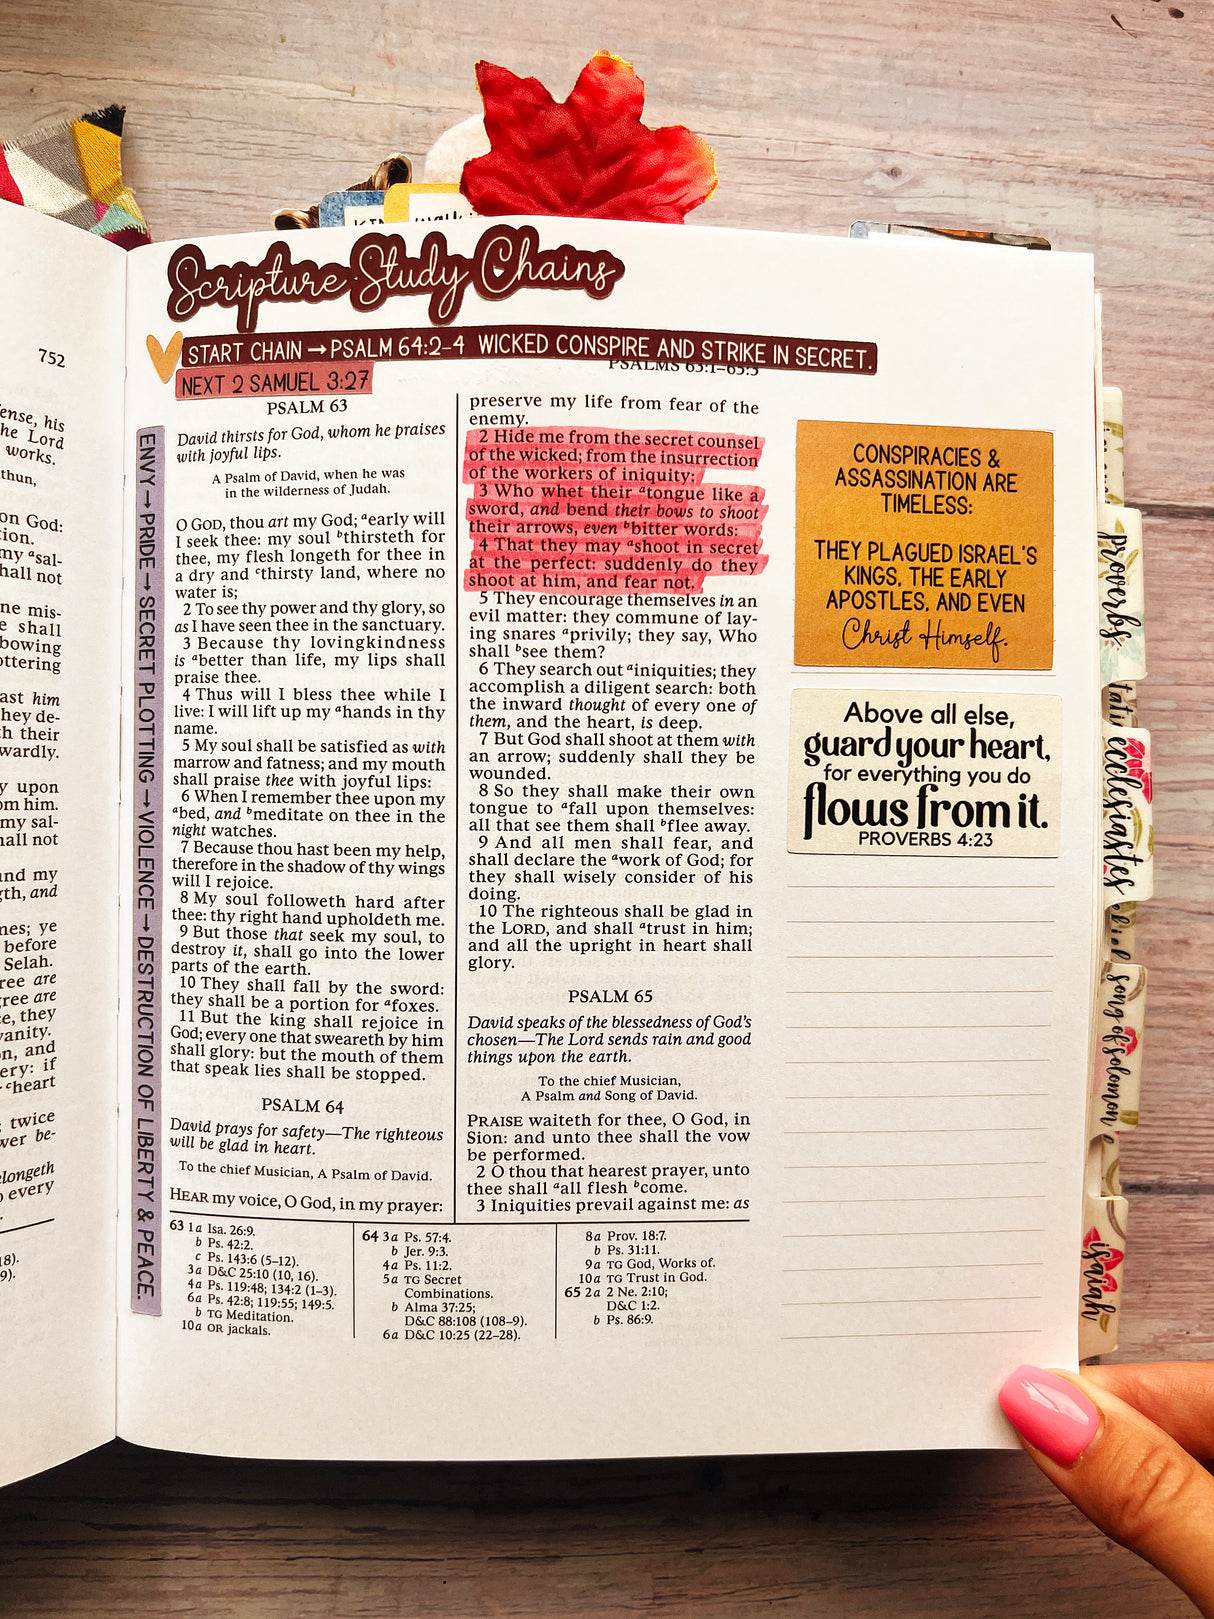 walk
Scripture Study Chains
START CHAIN → PSALM 64:2-4 WICKED CONSPIRE AND STRIKE IN SECRET.
NEXT 2 SAMUEL 3:27
PSALMS 63:1–65:3
752
ense, his
he Lord
works.
thun,
on God:
tion.
my ᵃsal-
hall not
ne mis-
e shall
bowing
ottering
ast him
hey de-
th their
wardly.
y upon
om him.
my sal-
hall not
and my
gth, and
mes; ye
before
Selah.
ree are
gree are
ce, they
vanity.
on, and
ery: if
ᶜheart
; twice
wer be-
elongeth
o every
18).
9).
ENVY → PRIDE → SECRET PLOTTING → VIOLENCE → DESTRUCTION OF LIBERTY & PEACE.
PSALM 63
David thirsts for God, whom he praises
with joyful lips.
A Psalm of David, when he was
in the wilderness of Judah.
O GOD, thou art my God; ᵃearly will
I seek thee: my soul ᵇthirsteth for
thee, my flesh longeth for thee in
a dry and ᶜthirsty land, where no
water is;
2 To see thy power and thy glory, so
as I have seen thee in the sanctuary.
3 Because thy lovingkindness
is ᵃbetter than life, my lips shall
praise thee.
4 Thus will I bless thee while I
live: I will lift up my ᵃhands in thy
name.
5 My soul shall be satisfied as with
marrow and fatness; and my mouth
shall praise thee with joyful lips:
6 When I remember thee upon my
ᵃbed, and ᵇmeditate on thee in the
night watches.
7 Because thou hast been my help,
therefore in the shadow of thy wings
will I rejoice.
8 My soul followeth hard after
thee: thy right hand upholdeth me.
9 But those that seek my soul, to
destroy it, shall go into the lower
parts of the earth.
10 They shall fall by the sword:
they shall be a portion for ᵃfoxes.
11 But the king shall rejoice in
God; every one that sweareth by him
shall glory: but the mouth of them
that speak lies shall be stopped.
PSALM 64
David prays for safety—The righteous
will be glad in heart.
To the chief Musician, A Psalm of David.
HEAR my voice, O God, in my prayer:
preserve my life from fear of the
enemy.
2 Hide me from the secret counsel
of the wicked; from the insurrection
of the workers of iniquity:
3 Who whet their ᵃtongue like a
sword, and bend their bows to shoot
their arrows, even ᵇbitter words:
4 That they may ᵃshoot in secret
at the perfect: suddenly do they
shoot at him, and fear not.
5 They encourage themselves in an
evil matter: they commune of lay-
ing snares ᵃprivily; they say, Who
shall ᵇsee them?
6 They search out ᵃiniquities; they
accomplish a diligent search: both
the inward thought of every one of
them, and the heart, is deep.
7 But God shall shoot at them with
an arrow; suddenly shall they be
wounded.
8 So they shall make their own
tongue to ᵃfall upon themselves:
all that see them shall ᵇflee away.
9 And all men shall fear, and
shall declare the ᵃwork of God; for
they shall wisely consider of his
doing.
10 The righteous shall be glad in
the LORD, and shall ᵃtrust in him;
and all the upright in heart shall
glory.
PSALM 65
David speaks of the blessedness of God's
chosen—The Lord sends rain and good
things upon the earth.
To the chief Musician,
A Psalm and Song of David.
PRAISE waiteth for thee, O God, in
Sion: and unto thee shall the vow
be performed.
2 O thou that hearest prayer, unto
thee shall ᵃall flesh ᵇcome.
3 Iniquities prevail against me: as
63 1a Isa. 26:9.
b Ps. 42:2.
c Ps. 143:6 (5–12).
3a D&C 25:10 (10, 16).
4a Ps. 119:48; 134:2 (1–3).
6a Ps. 42:8; 119:55; 149:5.
b TG Meditation.
10a OR jackals.
64 3a Ps. 57:4.
b Jer. 9:3.
4a Ps. 11:2.
5a TG Secret
Combinations.
b Alma 37:25;
D&C 88:108 (108–9).
6a D&C 10:25 (22–28).
8a Prov. 18:7.
b Ps. 31:11.
9a TG God, Works of.
10a TG Trust in God.
65 2a 2 Ne. 2:10;
D&C 1:2.
b Ps. 86:9.
CONSPIRACIES &
ASSASSINATION ARE
TIMELESS:
THEY PLAGUED ISRAEL'S
KINGS, THE EARLY
APOSTLES, AND EVEN
Christ Himself.
Above all else,
guard your heart,
for everything you do
flows from it.
PROVERBS 4:23
proverbs
ecclesiastes
song of solomon
isaiah